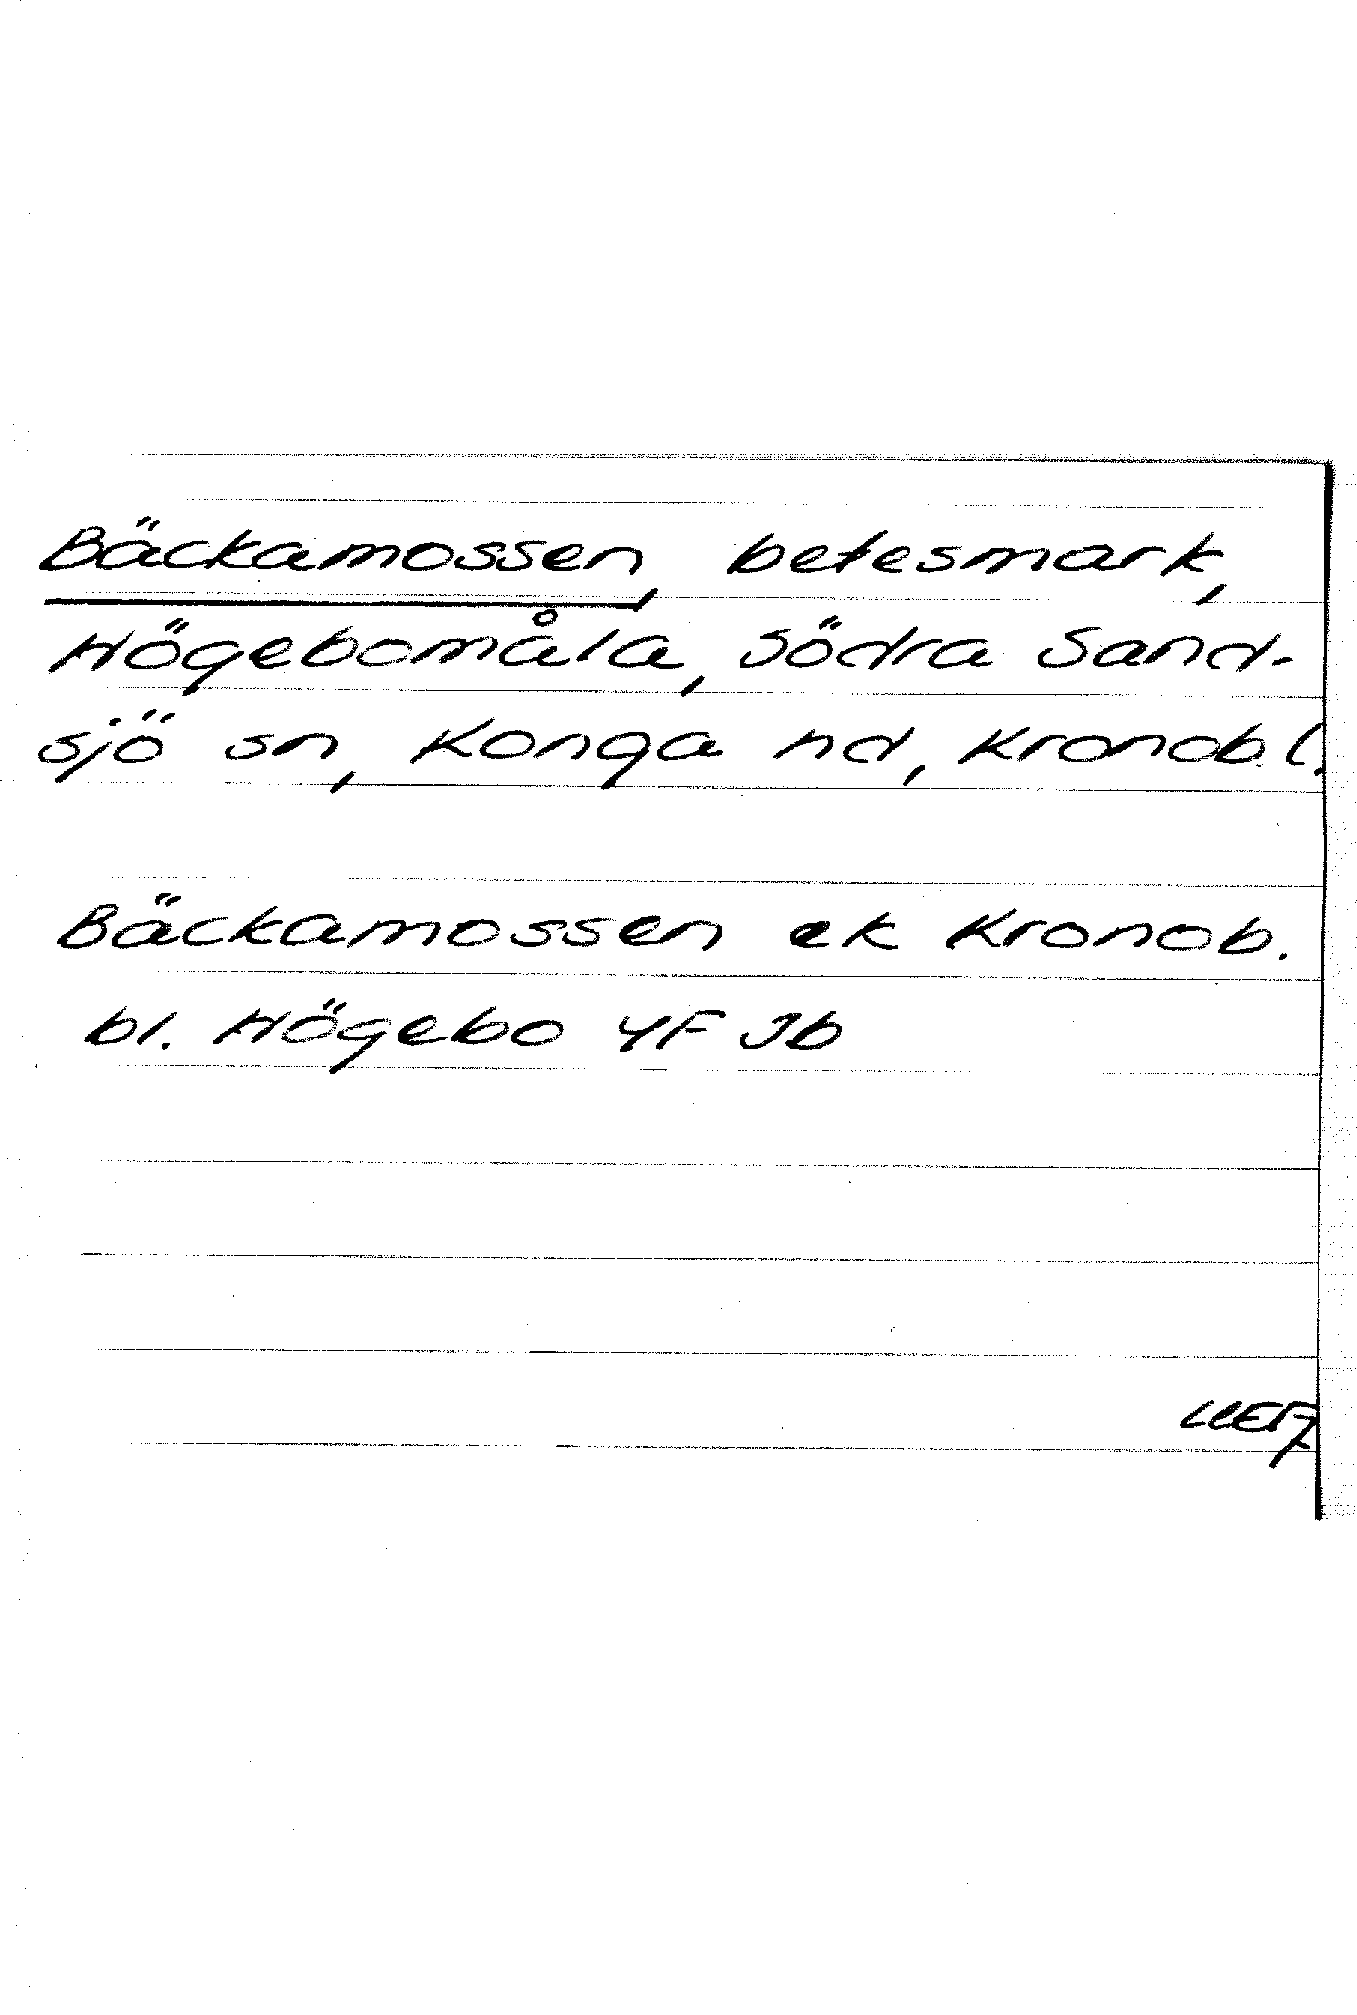 Bäckamossen, betesmark,
Högebomåla, Södra Sand-
sjö sn, Konga hd, Kronob l.
Bäckamossen ek Kronob.
bl. Högebo 4F Jb